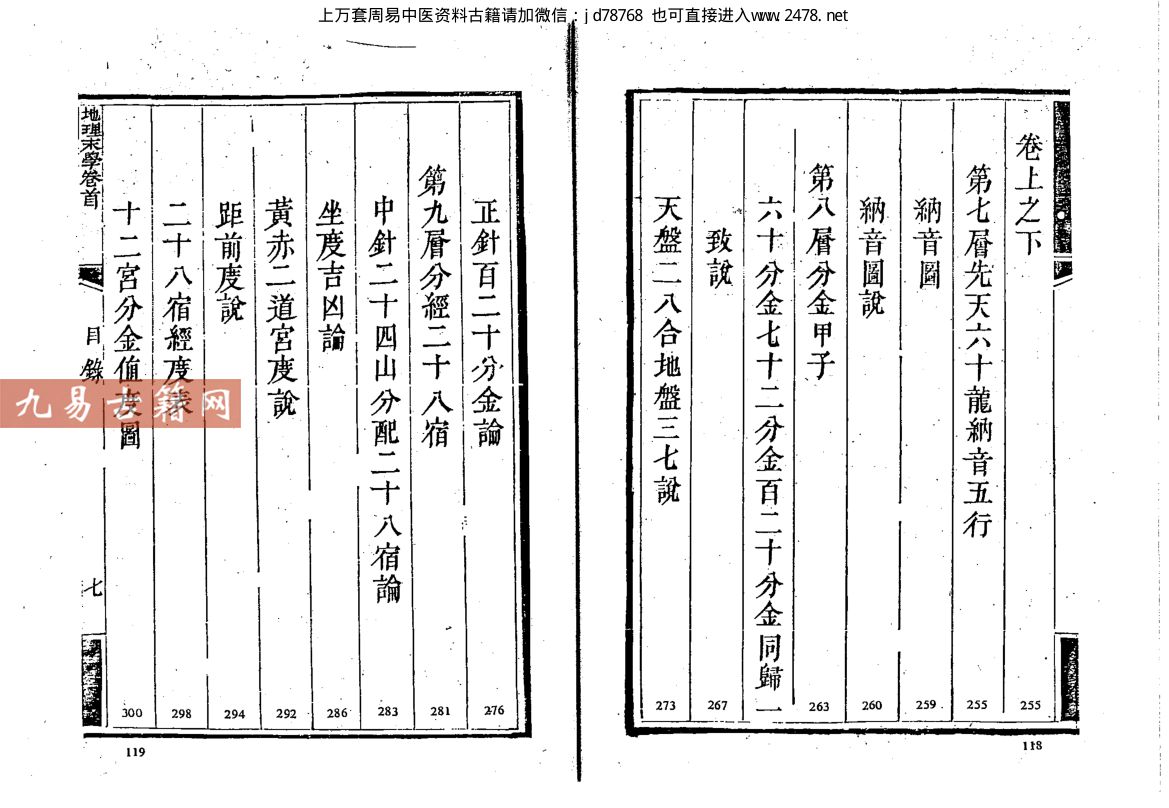 上万套周易中医资料古籍请加微信：jd78768 也可直接进入www.2478.net
卷上之下
255
第七層先天六十龍納音五行
255
納音圖
259
納音圖說
260
第八層分金甲子
263
六十分金七十二分金百二十分金同歸一
致說
267
天盤二八合地盤三七說
273
118
正針百二十分金論
276
第九層分經二十八宿
281
中針二十四山分配二十八宿論
283
坐度吉凶論
286
黃赤二道宮度說
292
距前度說
294
二十八宿經度表
298
十二宮分金値度圖
300
地理末學卷首
目錄
七
119
九易古籍网